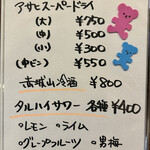 アサヒスーパードライ
(大) ¥750
(中) ¥500
(小) ¥300
(中ビン) ¥550
赤城山冷酒 ¥800
タルハイサワー 各種¥400
・レモン ・ライム
・グレープフルーツ ・男梅